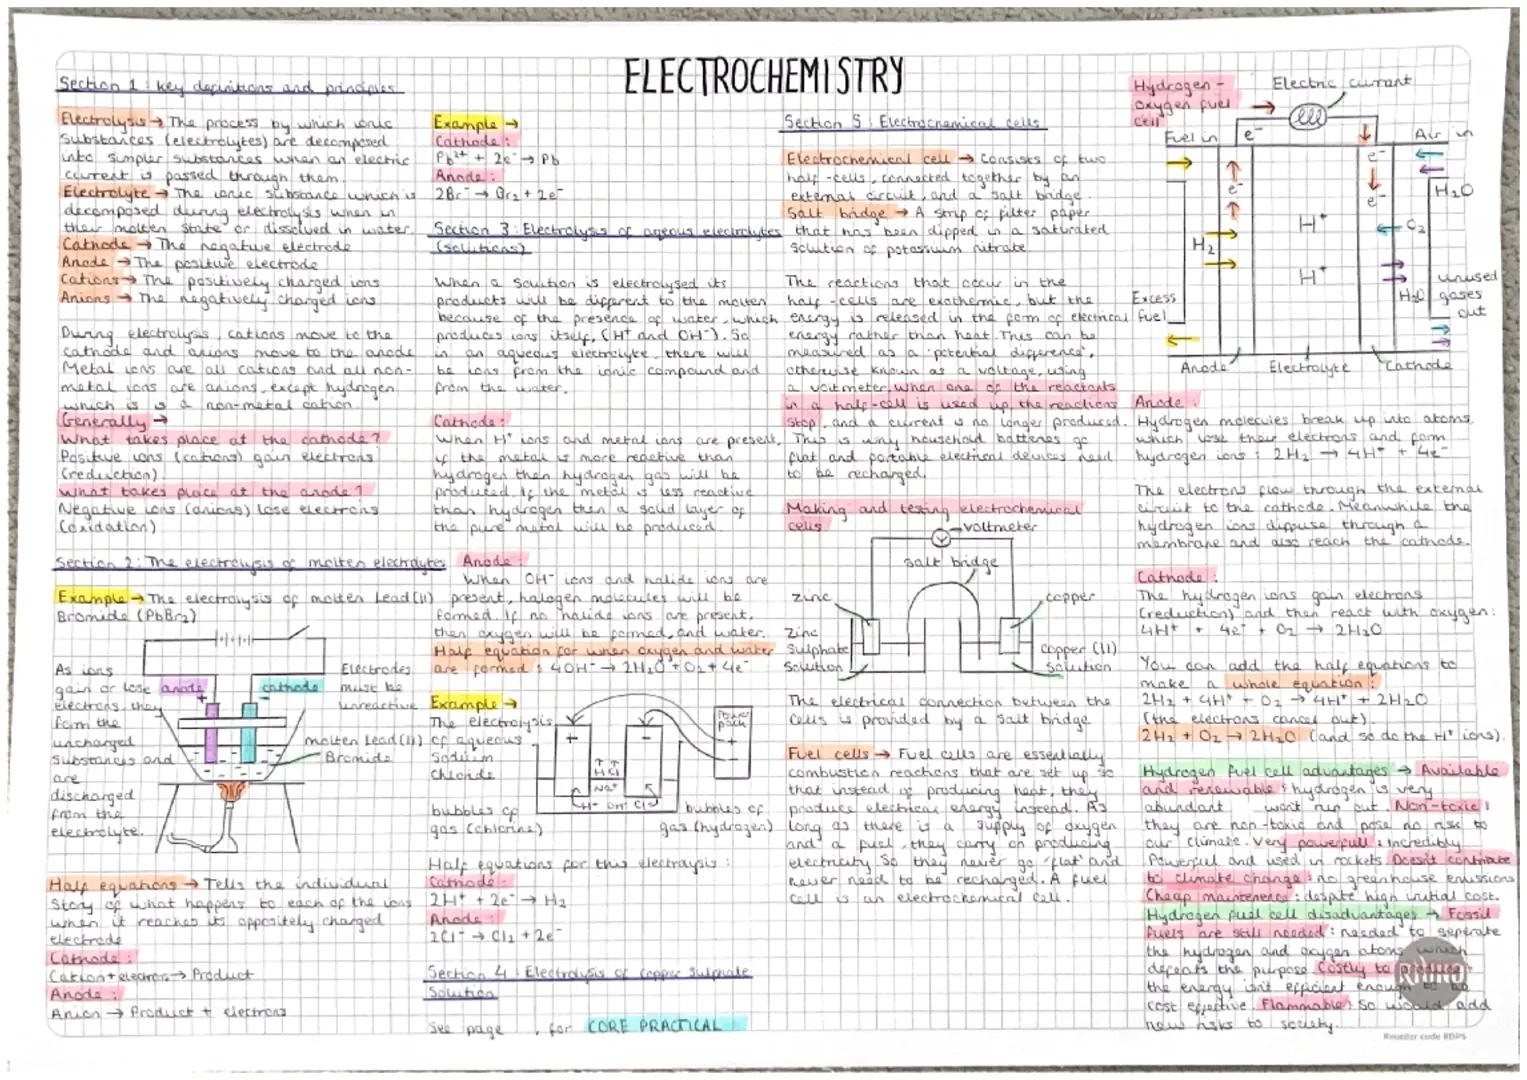 ELECTROCHEMISTRY
Section 1: key definitions and principles
Electrolysis → The process by which ionic
substances (electrolytes) are decomposed
into simpler substances when an electric
current is passed through them.
Electrolyte → The ionic substance which is
decomposed during electrolysis when in
their molten state or dissolved in water.
Cathode → The negative electrode
Anode → The positive electrode
Cations → The positively charged ions
Anions → The negatively charged ions
During electrolysis, cations move to the
cathode and anions move to the anode
Metal ions are all cations and all non-
metal ions are anions, except hydrogen
which is a non-metal cation.
Generally →
What takes place at the cathode?
Positive ions (cations) gain electrons
(reduction)
What takes place at the anode?
Negative ions (anions) lose electrons
(oxidation)
Section 2: The electrolysis of molten electrolytes
Example → The electrolysis of molten Lead(II)
Bromide (PbBr2)
As ions
gain or lose
electrons, they
form the
uncharged
substances and
are
discharged
from the
electrolyte.
anode
+
cathode
-
Electrodes
must be
unreactive
molten Lead(II)
Bromide
Half equations → Tells the individual
story of what happens to each of the ions
when it reaches its oppositely charged
electrode
Cathode:
Cation + electrons → Product
Anode:
Anion → Product + electrons
Example →
Cathode:
Pb²⁺ + 2e⁻ → Pb
Anode:
2Br⁻ → Br2 + 2e⁻
Section 3: Electrolysis of aqeous electrolytes
(solutions)
When a solution is electrolysed its
products will be different to the molten
because of the presence of water, which
produces ions itself, (H⁺ and OH⁻). So
in an aqueous electrolyte, there will
be ions from the ionic compound and
from the water.
Cathode:
When H⁺ ions and metal ions are present,
if the metal is more reactive than
hydrogen then hydrogen gas will be
produced. If the metal is less reactive
than hydrogen then a solid layer of
the pure metal will be produced.
Anode:
When OH⁻ ions and halide ions are
present, halogen molecules will be
formed. If no halide ions are present,
then oxygen will be formed, and water.
Half equation for when oxygen and water
are formed: 4OH⁻ → 2H2O + O2 + 4e⁻
Example →
The electrolysis
of aqueous
Sodium
Chloride
Power
pack
+
-
+
-
H Cl
Na⁺
H⁺ OH⁻ Cl⁻
bubbles of
gas (chlorine)
bubbles of
gas (hydrogen)
Half equations for this electrolysis:
Cathode:
2H⁺ + 2e⁻ → H2
Anode:
2Cl⁻ → Cl2 + 2e⁻
Section 4: Electrolysis of Copper Sulphate
Solution
See page , for CORE PRACTICAL
Section 5: Electrochemical cells
Electrochemical cell → consists of two
half-cells, connected together by an
external circuit, and a salt bridge.
Salt bridge → A strip of filter paper
that has been dipped in a saturated
solution of potassium nitrate
The reactions that occur in the
half-cells are exothermic, but the
energy is released in the form of electrical
energy rather than heat. This can be
measured as a 'potential difference',
otherwise known as a voltage, using
a voltmeter. When one of the reactants
in a half-cell is used up, the reactions
stop, and a current is no longer produced.
This is why household batteries go
flat and portable electrical devices need
to be recharged.
Making and testing electrochemical
cells
voltmeter
V
salt bridge
zinc
copper
Zinc
Sulphate
Solution
copper (II)
Solution
The electrical connection between the
cells is provided by a salt bridge
Fuel cells → Fuel cells are essentially
combustion reactions that are set up so
that instead of producing heat, they
produce electrical energy instead. As
long as there is a supply of oxygen
and a fuel, they carry on producing
electricity so they never go 'flat' and
never need to be recharged. A fuel
cell is an electrochemical cell.
Hydrogen-
oxygen fuel
cell
Electric current
Fuel in
e⁻
Air in
e⁻
e⁻
e⁻
H2O
H⁺
O2
H2
H⁺
H2O
unused
gases
out
Excess
fuel
Anode
Electrolyte
Cathode
Anode:
Hydrogen molecules break up into atoms,
which lose their electrons and form
hydrogen ions: 2H2 → 4H⁺ + 4e⁻
The electrons flow through the external
circuit to the cathode. Meanwhile the
hydrogen ions diffuse through a
membrane and also reach the cathode.
Cathode:
The hydrogen ions gain electrons
(reduction) and then react with oxygen:
4H⁺ + 4e⁻ + O2 → 2H2O
You can add the half equations to
make a whole equation:
2H2 + 4H⁺ + O2 → 4H⁺ + 2H2O
(the electrons cancel out).
2H2 + O2 → 2H2O (and so do the H⁺ ions).
Hydrogen fuel cell advantages → Available
and renewable: hydrogen is very
abundant won't run out. Non-toxic:
they are non-toxic and pose no risk to
our climate. Very powerful: Incredibly
Powerful and used in rockets Doesn't contribute
to climate change: no greenhouse emissions
Cheap maintenence: despite high initial cost.
Hydrogen fuel cell disadvantages → Fossil
fuels are still needed: needed to seperate
the hydrogen and oxygen atoms which
defeats the purpose. Costly to produce:
the energy isn't efficient enough to be
cost effective. Flammable: So would add
new risks to society.
Reorder code RDPS